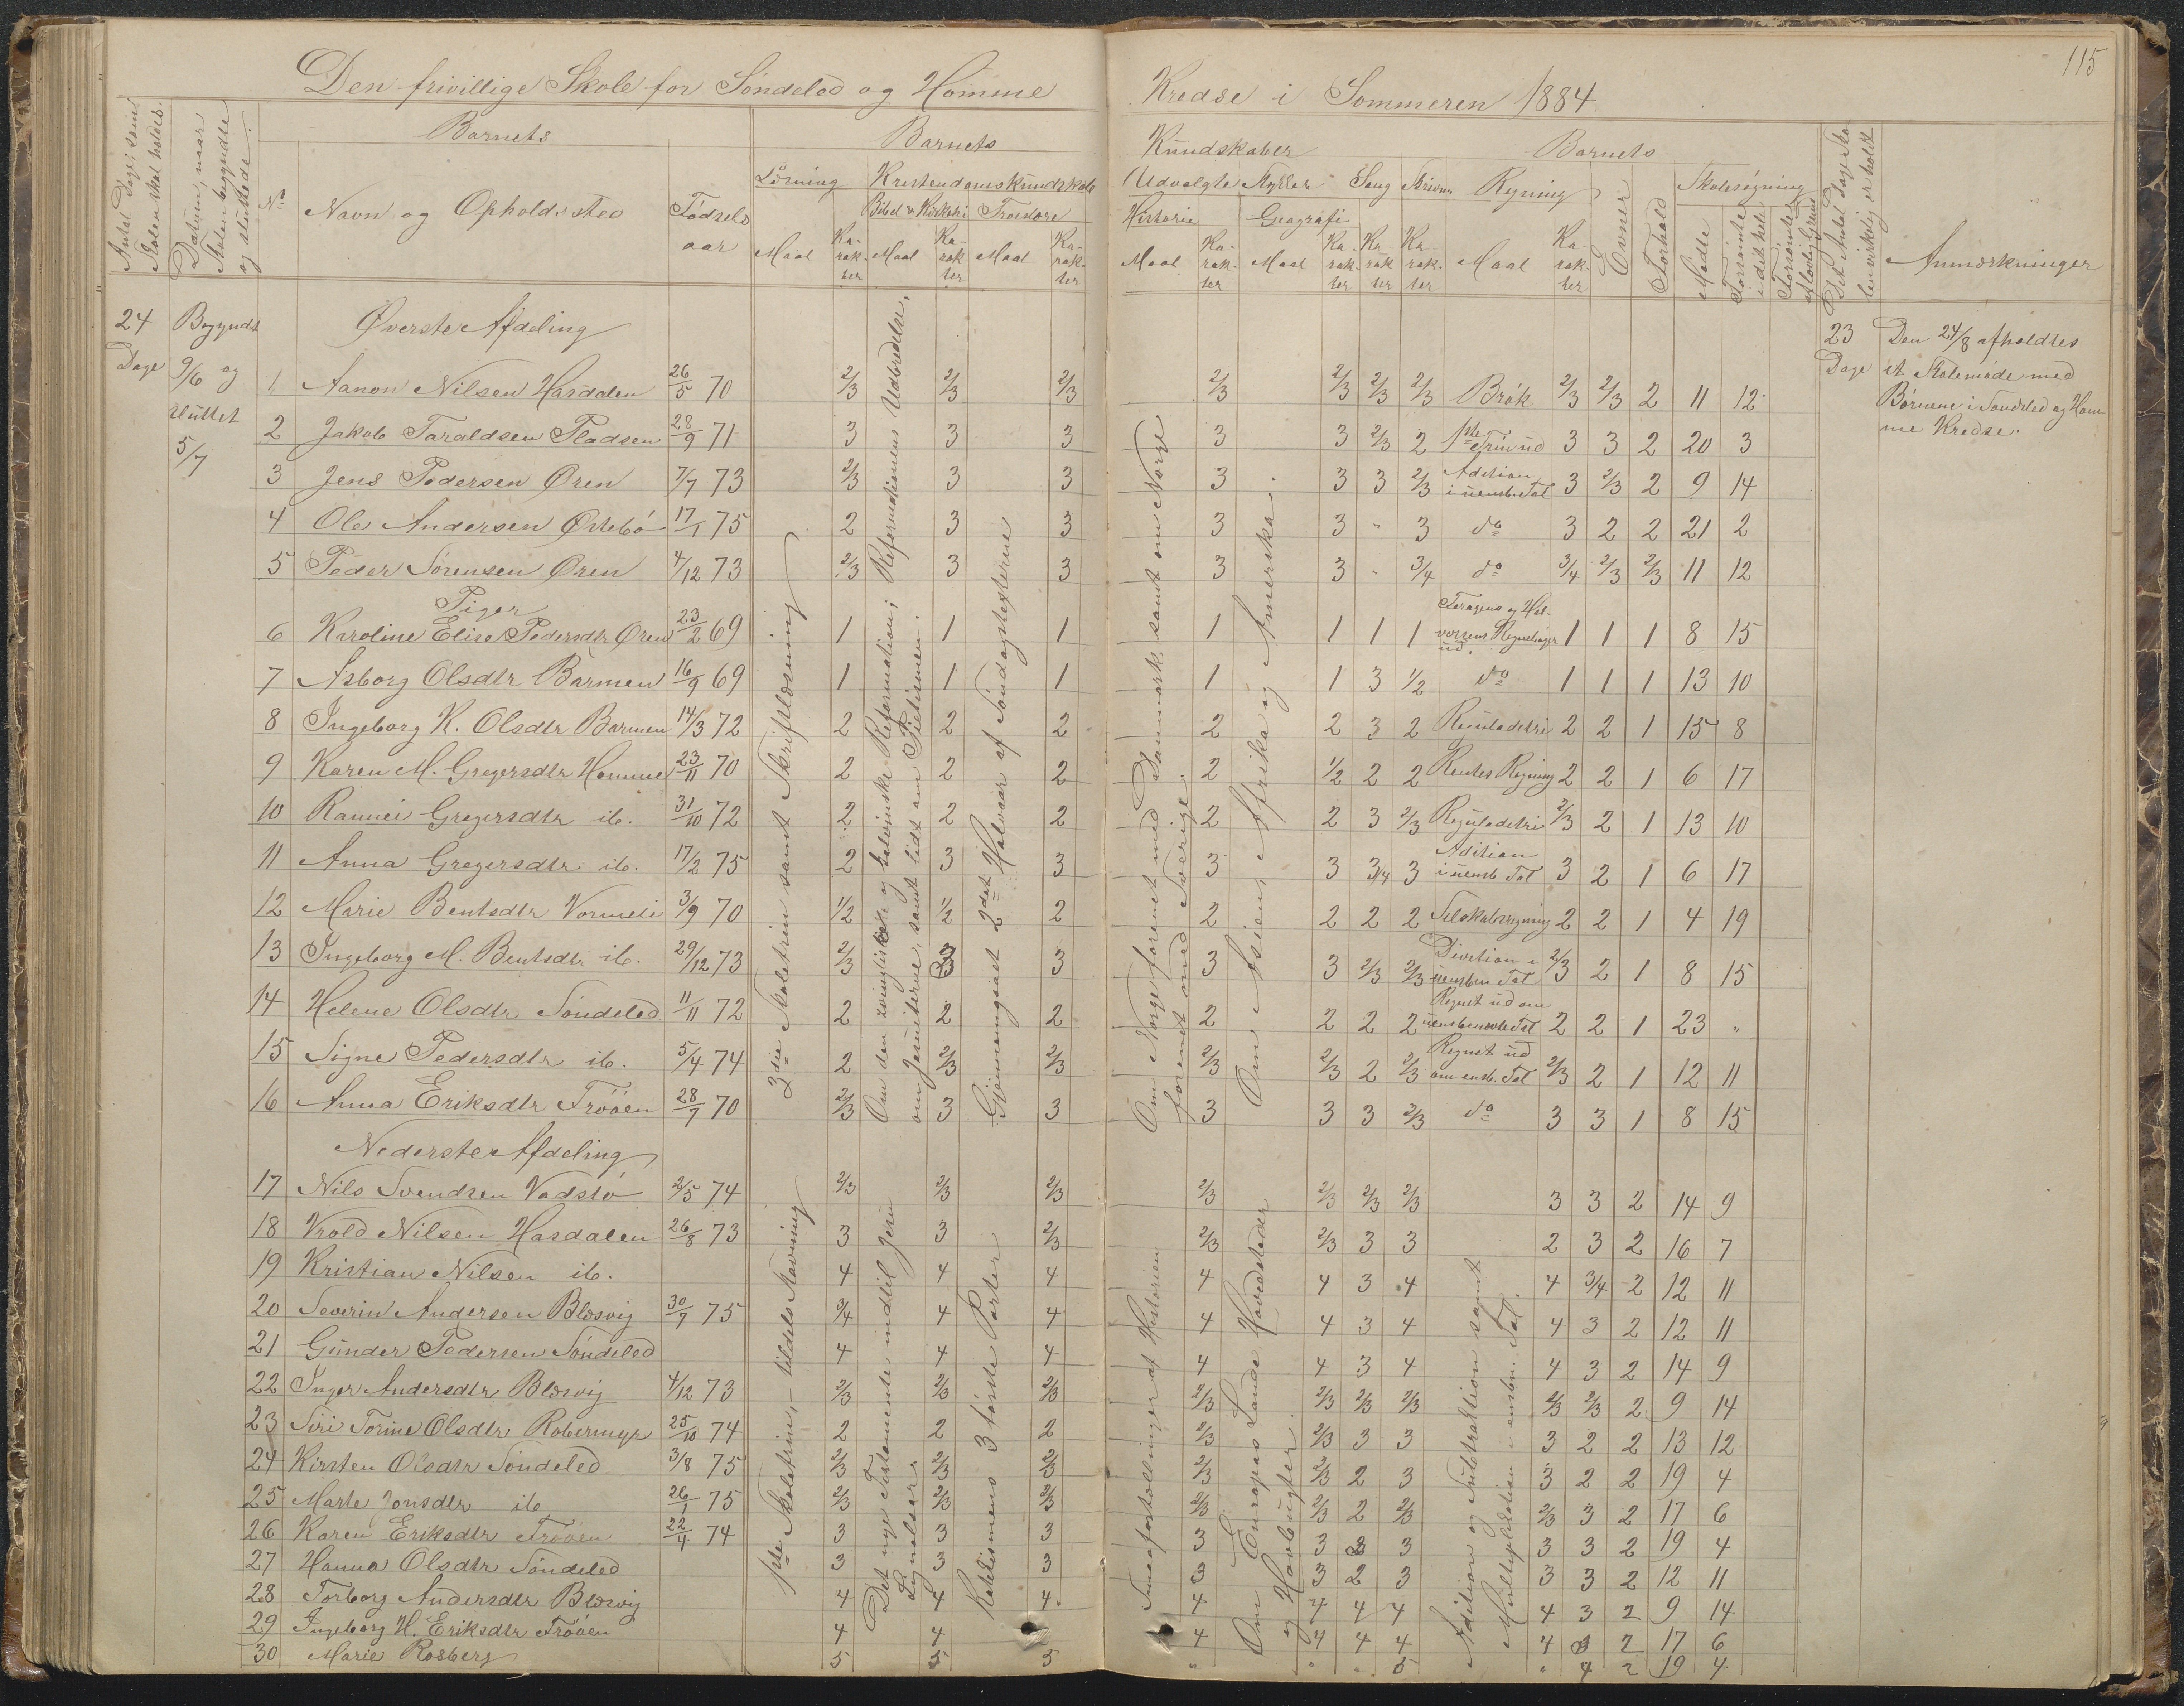 115
Den frivillige Skole for Søndeled og Hømme Kredse i Sommeren 1884
Antal Dage, som Skolen skal holdes.
Datum, naar Skolen begyndte og sluttede.
Barnets
No
Navn og Opholdssted
Fødselsaar
Barnets Kundskaber
Læsning
Maal
Karakter
Kristendomskundskab
Bibel & Kirkehi
Maal
Karakter
Troeslære
Maal
Karakter
Udvalgte Stykker
Historie
Maal
Karakter
Geografi
Maal
Karakter
Sang
Karakter
Skrivn
Karakter
Barnets
Regning
Maal
Karakter
Evner
Forhold
Skolesøgning
Mødte
Forsømte i det hele
Forsømte af lovlig Grund
Det Antal Dage Skolen virkelig er holdt
Anmærkninger
24 Dage
Begyndt 9/6 og sluttet 5/7
Øverste Afdeling
3die Skoletrin samt Skriftlæsning
Om den zwingliske og kalvinske Reformation; Reformationens Udbredelse, om Jesuiterne, samt lidt om Pietismen.
Gjennemgaaet 2det Halvaar af Søndagstexterne
Om Norge forenet med Danmark samt om Norge forenet med Sverige.
Om Asien, Afrika og Amerika.
23 Dage
Den 24/8 afholdtes
et Skolemøde med
Børnene i Søndeled og Høm-
me Kredse.
1 Aanon Nilsen Hasdalen 26/5 70 2/3 2/3 2/3 2/3 2/3 2/3 2/3 Brøk 2/3 2/3 2 11 12
2 Jakob Taraldsen Pladsen 28/9 71 3 3 3 3 3 2/3 2 1ste Trin ud 3 3 2 20 3
3 Jens Pedersen Øren 7/7 73 2/3 3 3 3 3 3 2/3 Adition i uensb. Tal 3 2/3 2 9 14
4 Ole Andersen Østebø 17/1 75 2 3 3 3 3 " 3 do 3 2 2 21 2
5 Peder Sørensen Øren 4/12 73 2/3 3 3 3 3 " 3/4 do 3/4 2/3 2/3 11 12
Piger
6 Karoline Elise Pedersdtr Øren 23/2 69 1 1 1 1 1 1 1 og Hal-vorsens Regnebøger ud. 1 1 1 8 15
7 Asborg Olsdtr Barmen 16/9 69 1 1 1 1 1 3 1/2 do 1 1 1 13 10
8 Ingeborg K. Olsdtr Barmen 14/3 72 2 2 2 2 2 3 2 Reguladetri 2 2 1 15 8
9 Karen M. Gregersdtr Hømme 23/11 70 2 2 2 2 1/2 2 2 Rentes Regning 2 2 1 6 17
10 Rannei Gregersdtr ib. 31/10 72 2 2 2 2 2 3 2/3 Reguladetri 2/3 2 1 13 10
11 Anna Gregersdtr ib. 17/2 75 2 3 3 3 3 3/4 3 Adition i uensb Tal 3 2 1 6 17
12 Marie Bentsdtr Vormeli 3/9 70 1/2 1/2 2 2 2 2 2 Selskabsregning 2 2 1 4 19
13 Ingeborg M. Bentsdtr ib. 29/12 73 2/3 3 3 3 3 2/3 2/3 Division i uensbn Tal 2/3 2 1 8 15
14 Helene Olsdtr Søndeled 11/11 72 2 2 2 2 2 2 2 Regnet ud om uensbenævnte Tal 2 2 1 23 "
15 Signe Pedersdtr ib. 5/4 74 2 2/3 2/3 2/3 2/3 2 2/3 Regnet ud om ensb. Tal 2/3 2 1 12 11
16 Anna Eriksdtr Frøøen 28/7 70 2/3 3 3 3 3 3 2/3 do 3 3 1 8 15
Nederste Afdeling
1ste Skoletrin, – tildels Stavning
Det nye Testamente indtil Jesu Lignelser
Katekismens 3 første Parter
Smaafortællinger af Historien
Om Europas Lande Hovedstæder og Havbugter.
Adition og Subtraktion samt Multiplikation i ensbn. Tal.
17 Nils Svendsen Vadstø 2/5 74 2/3 2/3 2/3 2/3 2/3 2/3 2/3 3 3 2 14 9
18 Vrold Nilsen Hasdalen 26/8 73 3 3 2/3 2/3 2/3 3 3 2 3 2 16 7
19 Kristian Nilsen ib. 4 4 4 4 4 3 4 4 3/4 2 12 11
20 Severin Andersen Blæsvig 30/7 75 3/4 4 4 4 4 3 4 4 3 2 12 11
21 Gunder Pedersen Søndeled 4 4 4 4 4 3 4 4 3 2 14 9
22 Inger Andersdtr Blæsvig 4/12 73 2/3 2/3 2/3 2/3 2/3 2/3 2/3 2/3 2/3 2 9 14
23 Siri Torine Olsdtr Robermyr 25/10 74 2 2 2 2/3 2/3 3 3 3 2 2 13 12
24 Kirsten Olsdtr Søndeled 3/8 75 2/3 2/3 2/3 2/3 2/3 2 3 3 2 2 19 4
25 Marte Jonsdtr ib 26/1 75 2/3 2/3 2/3 2/3 2/3 2 2/3 2/3 3 2 17 6
26 Karen Eriksdtr Frøøen 22/4 74 3 3 3 3 3 3 3 3 2 19 4
27 Hanna Olsdtr Søndeled 3 3 3 3 3 2 3 3 3 2 12 11
28 Torborg Andersdtr Blæsvig 4 4 4 4 4 4 4 4 3 2 9 14
29 Ingeborg H. Eriksdtr Frøøen 4 4 4 4 4 4 4 2 17 6
30 Marie Rosberg 5 5 5 " " " 5 " 4 2 19 4